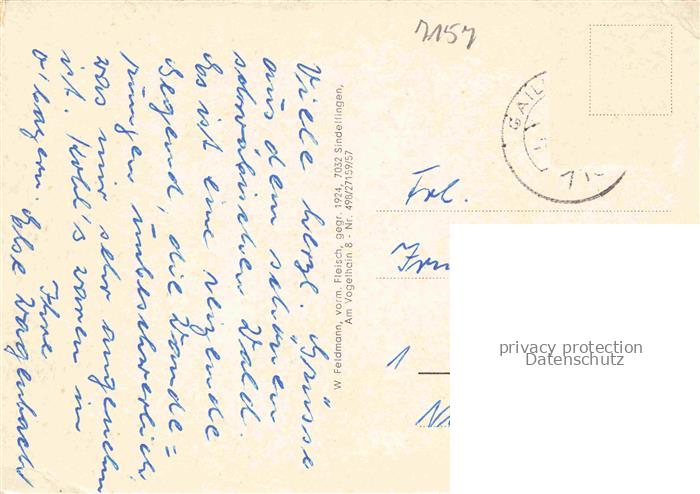 Viele herzl. Grüsse
aus dem schönen
schwäbischen Wald.
Es ist eine reizende
Gegend, die Wande=
rungen unbeschwerlich
was mir sehr angenehm
ist. Kohl's waren in
O'bayern.
Ihre
Else Wagenbach
W. Feldmann, vorm. Fleisch, gegr. 1924, 7032 Sindelfingen,
Am Vogelhain 8 - Nr. 498/27159/57
7157
GAIL
Frl.
1
privacy protection
Datenschutz